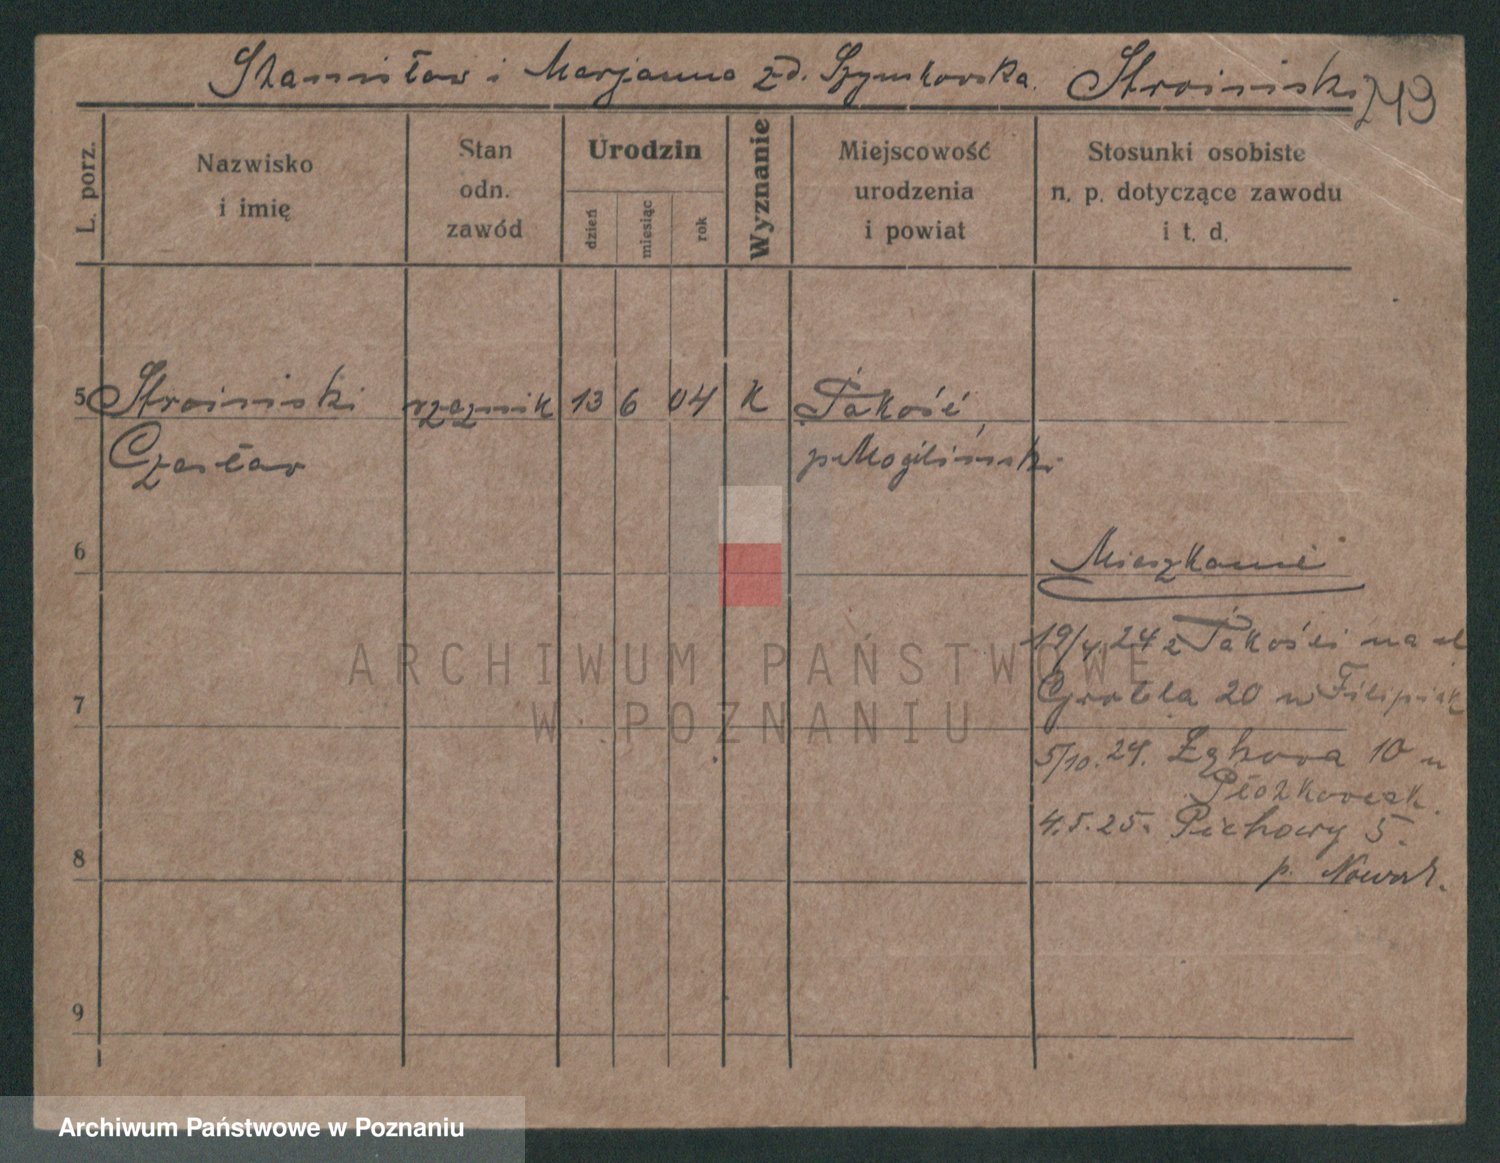 Stanisław i Marjanna zd. Szymkowska. Stroiński
243
L. porz.
Nazwisko
i imię
Stan
odn.
zawód
Urodzin
dzień
miesiąc
rok
Wyznanie
Miejscowość
urodzenia
i powiat
Stosunki osobiste
n. p. dotyczące zawodu
i t. d.
5 Stroiński rzeźnik 13 6 04 K Pakość
Czesław p. Mogiliński
6
Mieszkanie
19/4.24 z Pakości na ul
Grobla 20 u Filipiak
7
5/10.24. Łąkowa 10 u
4.5.25. Piekary 5.
8
p. Nowak.
9
ARCHIWUM PAŃSTWOWE
W POZNANIU
Archiwum Państwowe w Poznaniu